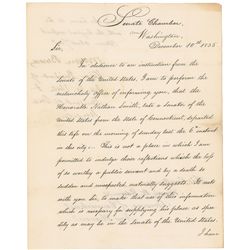 Senate Chamber,
Washington,
December 10th 1835
Sir,
In obedience to an instruction from the
Senate of the United States, I am to perform the
melancholy office of informing you, that the
Honorable Nathan Smith, late a Senator of the
United States from the State of Connecticut, departed
this life on the morning of sunday last the 6th instant
in this city. This is not a place in which I am
permitted to indulge those reflections which the loss
of so worthy a public servant and by a death so
sudden and unexpected, naturally suggests. It rests
with you Sir, to make that use of this information
which is necessary for supplying his place as spee-
dily as may be in the Senate of the United States.
I have